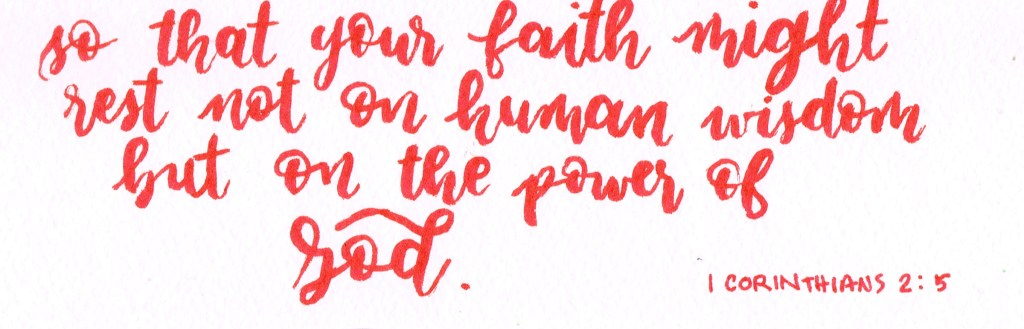 so that your faith might
rest not on human wisdom
but on the power of
God.
1 CORINTHIANS 2:5